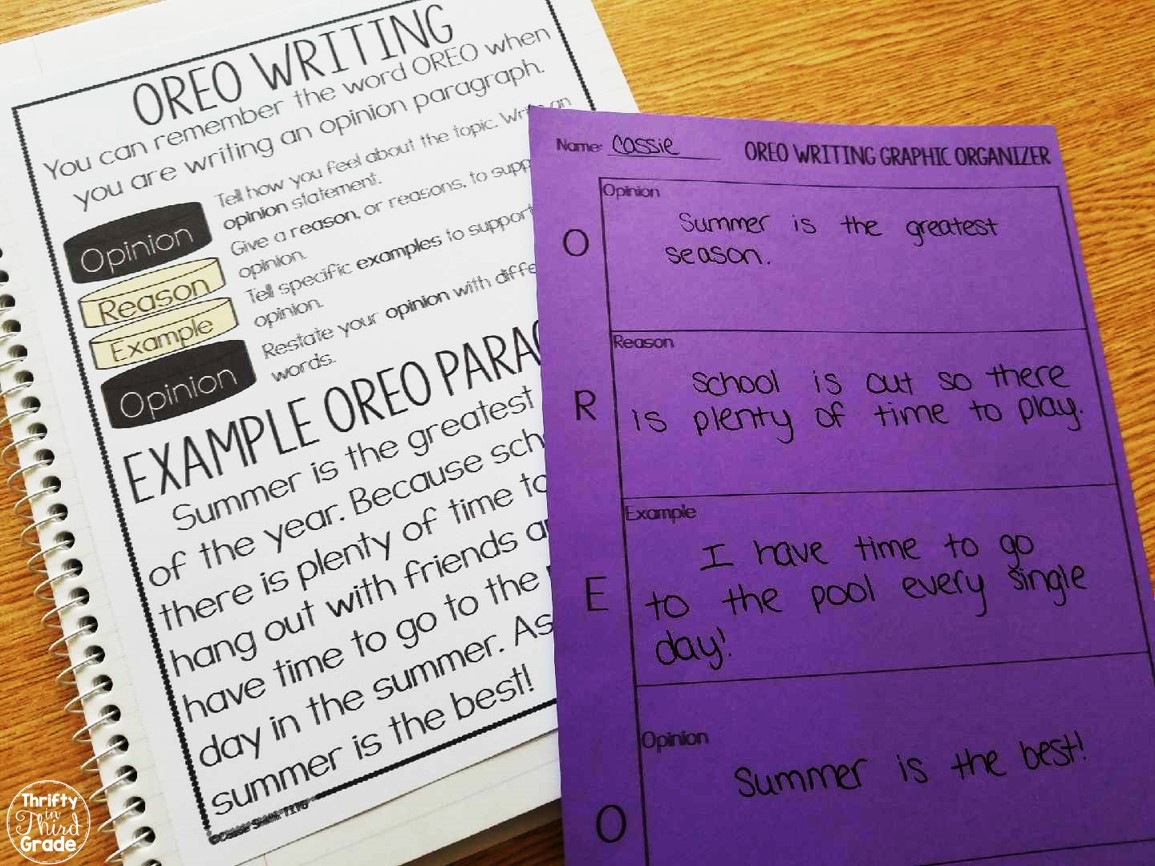 OREO WRITING
You can remember the word OREO when
you are writing an opinion paragraph.
Opinion
Reason
Example
Opinion
Tell how you feel about the topic. Write an
opinion statement.
Give a reason, or reasons, to supp
opinion.
Tell specific examples to support
opinion.
Restate your opinion with diffe
words.
EXAMPLE OREO PARAG
Summer is the greatest
of the year. Because sch
there is plenty of time to
hang out with friends a
have time to go to the
day in the summer. As
summer is the best!
Name: Cassie
OREO WRITING GRAPHIC ORGANIZER
O
Opinion
Summer is the greatest
season.
R
Reason
School is out so there
is plenty of time to play.
E
Example
I have time to go
to the pool every single
day!
O
Opinion
Summer is the best!
Thrifty
in
Third
Grade